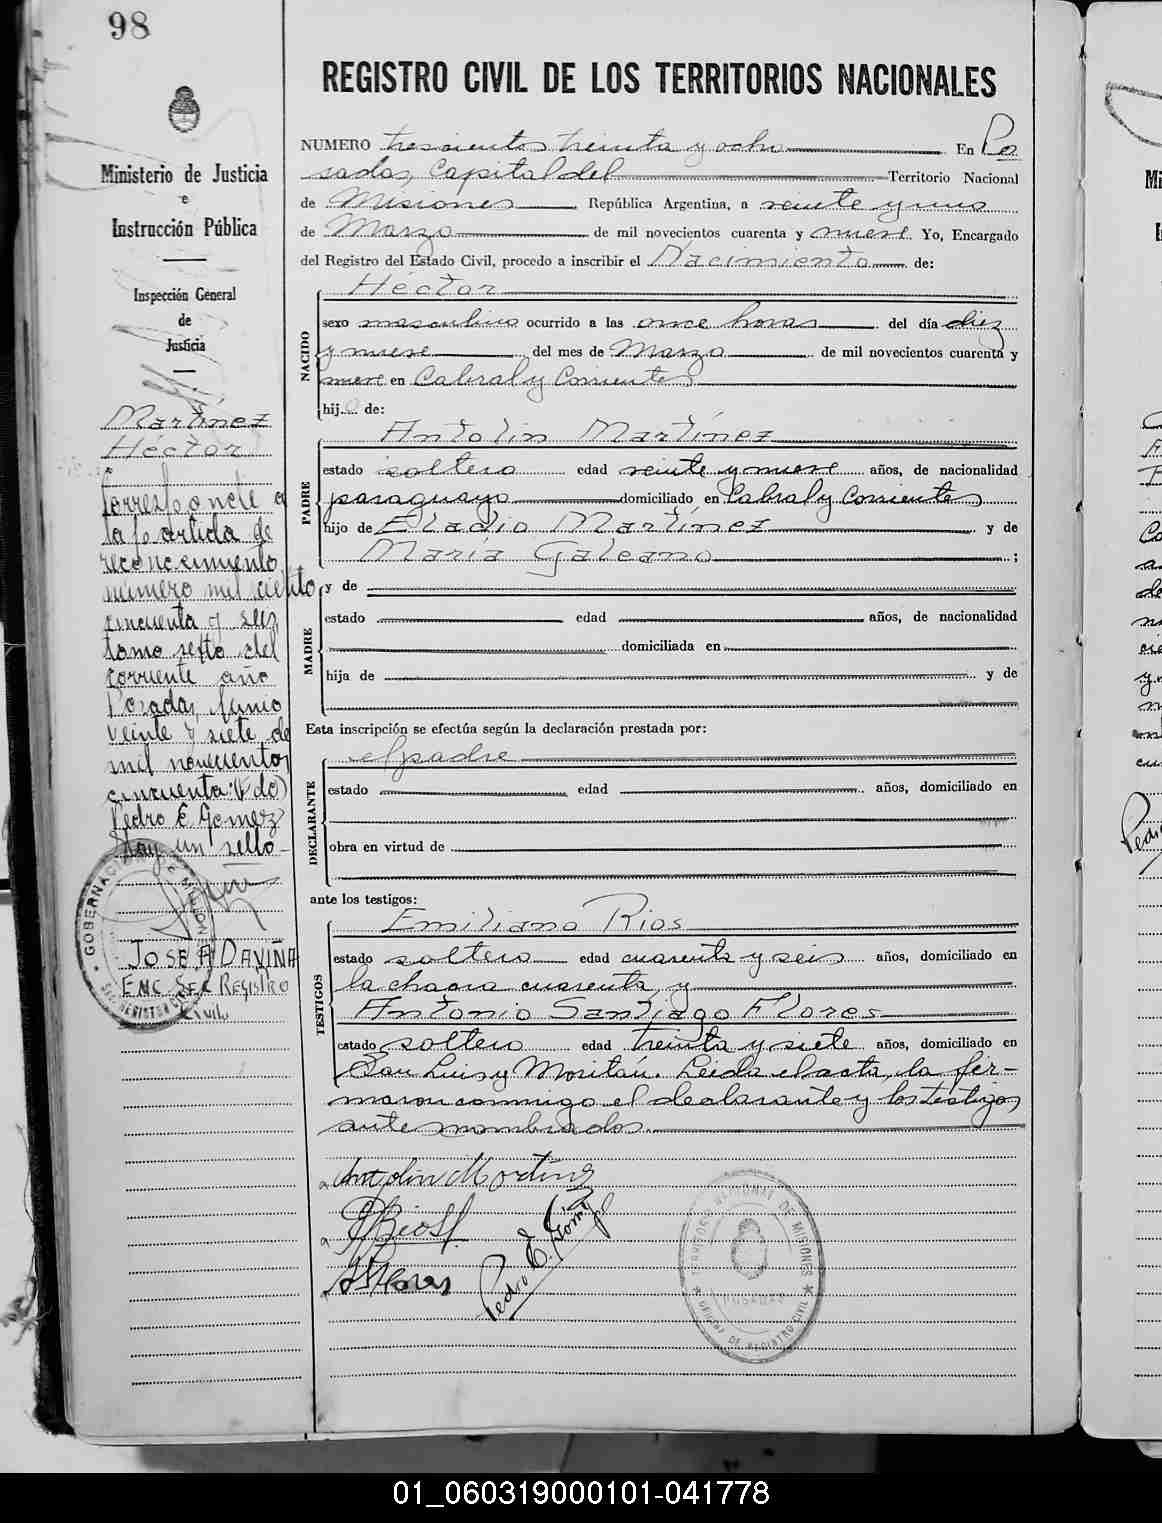 98
REGISTRO CIVIL DE LOS TERRITORIOS NACIONALES
Ministerio de Justicia
e
Instrucción Pública
Inspección General
de
Justicia
Martínez
Héctor
Corresponde a
la partida de
reconocimiento
número mil ciento
cincuenta y seis
tomo sexto del
corriente año
Posadas, Junio
veinte y siete de
mil novecientos
cincuenta: (Fdo)
Pedro E. Gomez
Hay un sello
JOSE A DAVIÑA
ENC. SEC REGISTRO
Civil
NUMERO trescientos treinta y ocho En Po
sadas, Capital del Territorio Nacional
de Misiones República Argentina, a veinte y uno
de Marzo de mil novecientos cuarenta y nueve Yo, Encargado
del Registro del Estado Civil, procedo a inscribir el Nacimiento de:
NACIDO
Héctor
sexo masculino ocurrido a las once horas del día diez
y nueve del mes de Marzo de mil novecientos cuarenta y
nueve en Cabral y Corrientes
hijo de:
PADRE
Antolin Martínez
estado soltero edad veinte y nueve años, de nacionalidad
paraguayo domiciliado en Cabral y Corrientes
hijo de Eladio Martínez y de
María Galeano ;
MADRE
y de
estado edad años, de nacionalidad
domiciliada en
hija de y de
Esta inscripción se efectúa según la declaración prestada por:
DECLARANTE
el padre
estado edad años, domiciliado en
obra en virtud de
ante los testigos:
TESTIGOS
Emiliano Rios
estado soltero edad cuarenta y seis años, domiciliado en
la chacra cuarenta, y
Antonio Santiago Flores
estado soltero edad treinta y siete años, domiciliado en
San Luis y Moritán. Leída el acta, la fir-
maron conmigo el declarante y los testigos
ante nombrados.
Antolin Martinez
Pedro E. Gómez
OFICINA DE REGISTRO CIVIL
POSADAS
01_060319000101-041778